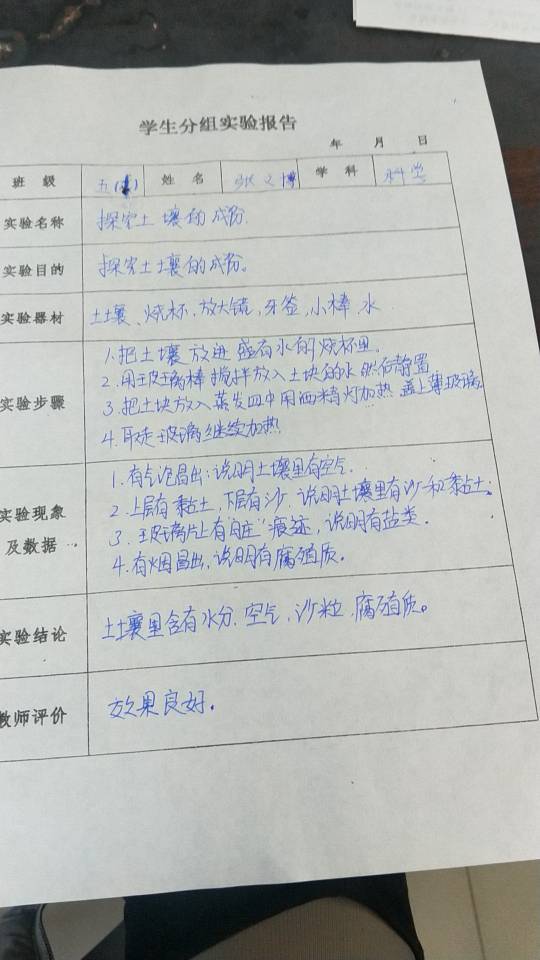 学生分组实验报告
年 月 日
班级 五( ) 姓名 张文博 学科 科学
实验名称 探究土壤的成份.
实验目的 探究土壤的成份。
实验器材 土壤、烧杯,放大镜,牙签,小棒,水
实验步骤
1.把土壤放进盛有水的烧杯里。
2.用玻璃棒搅拌放入土块的水然后静置
3.把土块放入蒸发皿中用酒精灯加热 盖上薄玻璃.
4.取走玻璃继续加热
实验现象及数据
1.有气泡冒出:说明土壤里有空气.
2.上层有黏土,下层有沙.说明土壤里有沙和黏土.
3.玻璃片上有"脏"痕迹,说明有盐类.
4.有烟冒出,说明有腐殖质.
实验结论 土壤里含有水分.空气,沙粒,腐殖质。
教师评价 效果良好.